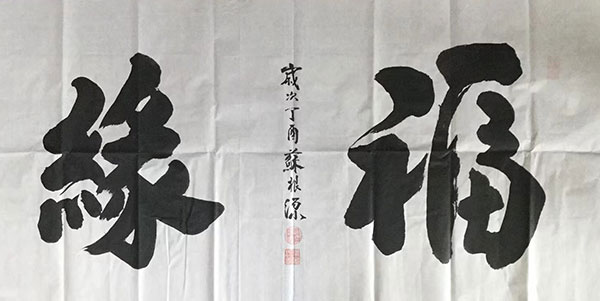 福緣
歲次丁酉蘇根源